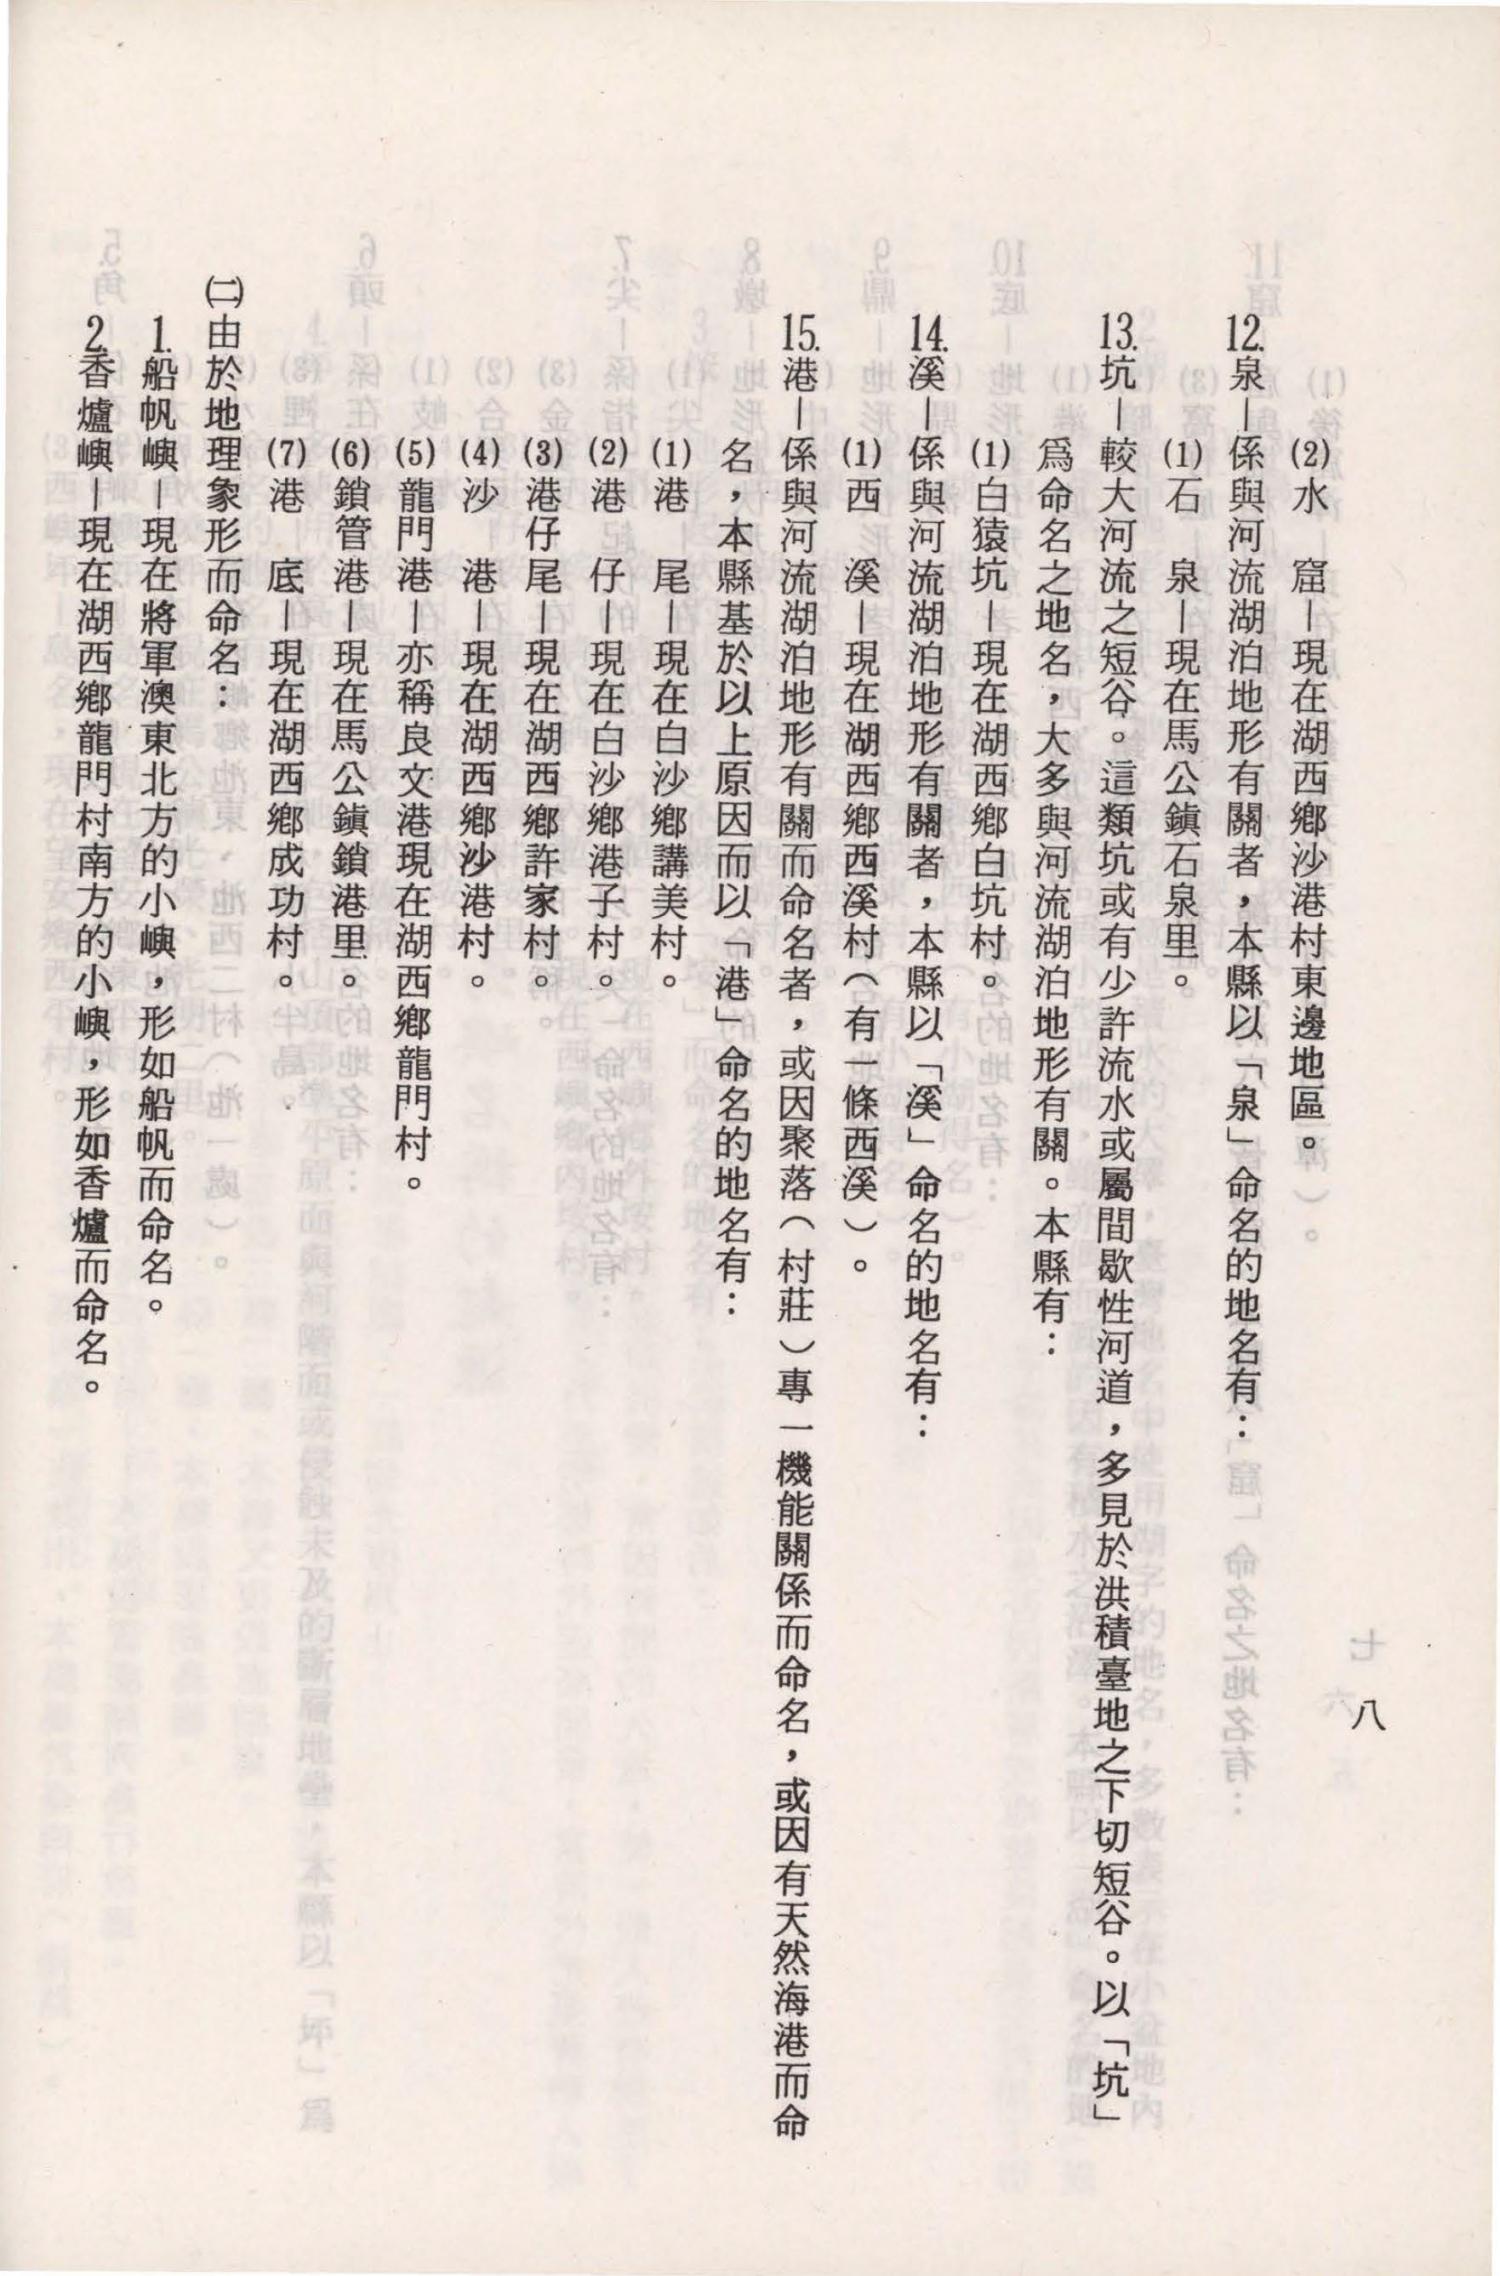 (2)水　窟—現在湖西鄉沙港村東邊地區。
12.泉—係與河流湖泊地形有關者，本縣以「泉」命名的地名有：
(1)石　泉—現在馬公鎮石泉里。
13.坑—較大河流之短谷。這類坑或有少許流水或屬間歇性河道，多見於洪積臺地之下切短谷。以「坑」
為命名之地名，大多與河流湖泊地形有關。本縣有：
(1)白猿坑—現在湖西鄉白坑村。
14.溪—係與河流湖泊地形有關者，本縣以「溪」命名的地名有：
(1)西　溪—現在湖西鄉西溪村（有一條西溪）。
15.港—係與河流湖泊地形有關而命名者，或因聚落（村莊）專一機能關係而命名，或因有天然海港而命
名，本縣基於以上原因而以「港」命名的地名有：
(1)港　尾—現在白沙鄉講美村。
(2)港　仔—現在白沙鄉港子村。
(3)港仔尾—現在湖西鄉許家村。
(4)沙　港—現在湖西鄉沙港村。
(5)龍門港—亦稱良文港現在湖西鄉龍門村。
(6)鎖管港—現在馬公鎮鎖港里。
(7)港　底—現在湖西鄉成功村。
㈡由於地理象形而命名：
1.船帆嶼—現在將軍澳東北方的小嶼，形如船帆而命名。
2.香爐嶼—現在湖西鄉龍門村南方的小嶼，形如香爐而命名。
八